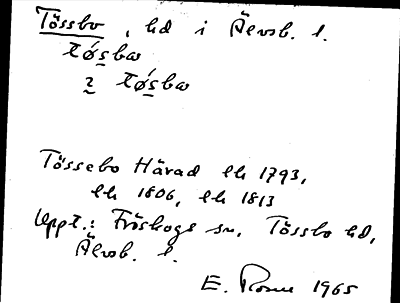 Tössbo, hd i Älvsb. l.
tø´sbω
2 tø´sbω
Tössebo Härad lk 1793,
lk 1806, lk 1813
Uppt.: Fröskogs sn, Tössbo hd,
Älvsb. l.
E. 1965